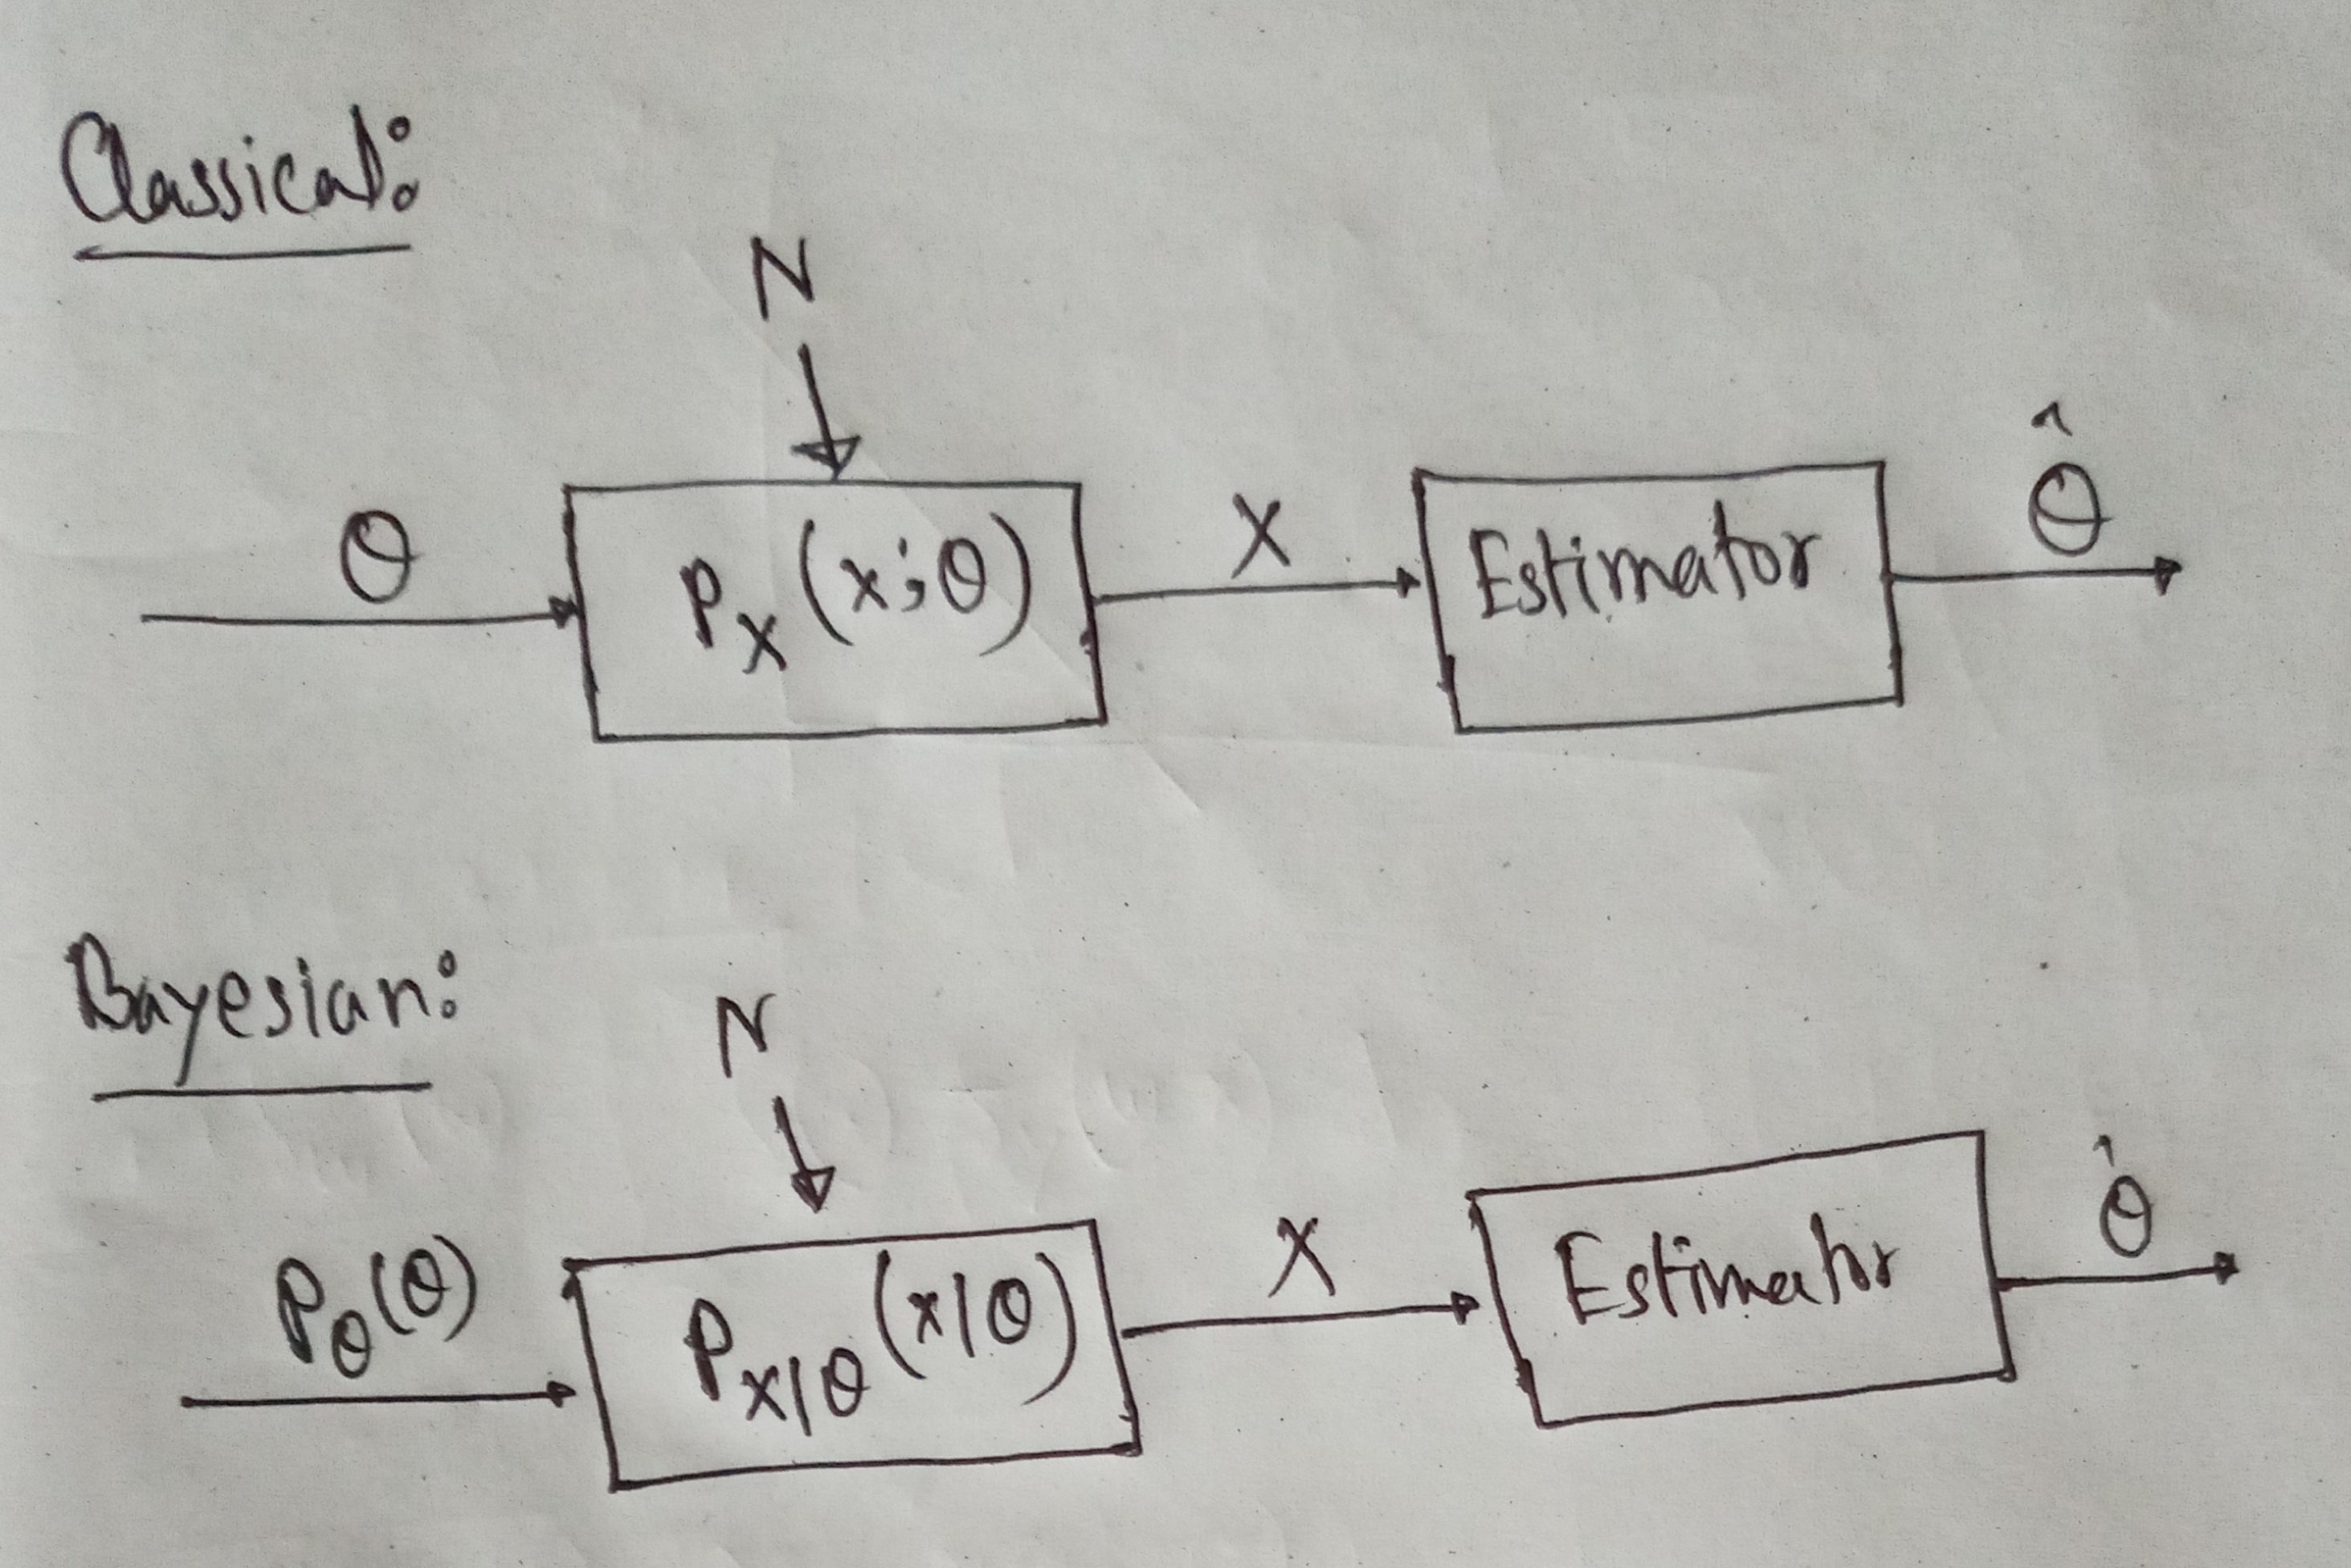 Classical:
N
θ
P_X (x;θ)
X
Estimator
θ̂
Bayesian:
N
P_θ(θ)
P_X|θ (x|θ)
X
Estimator
θ̂